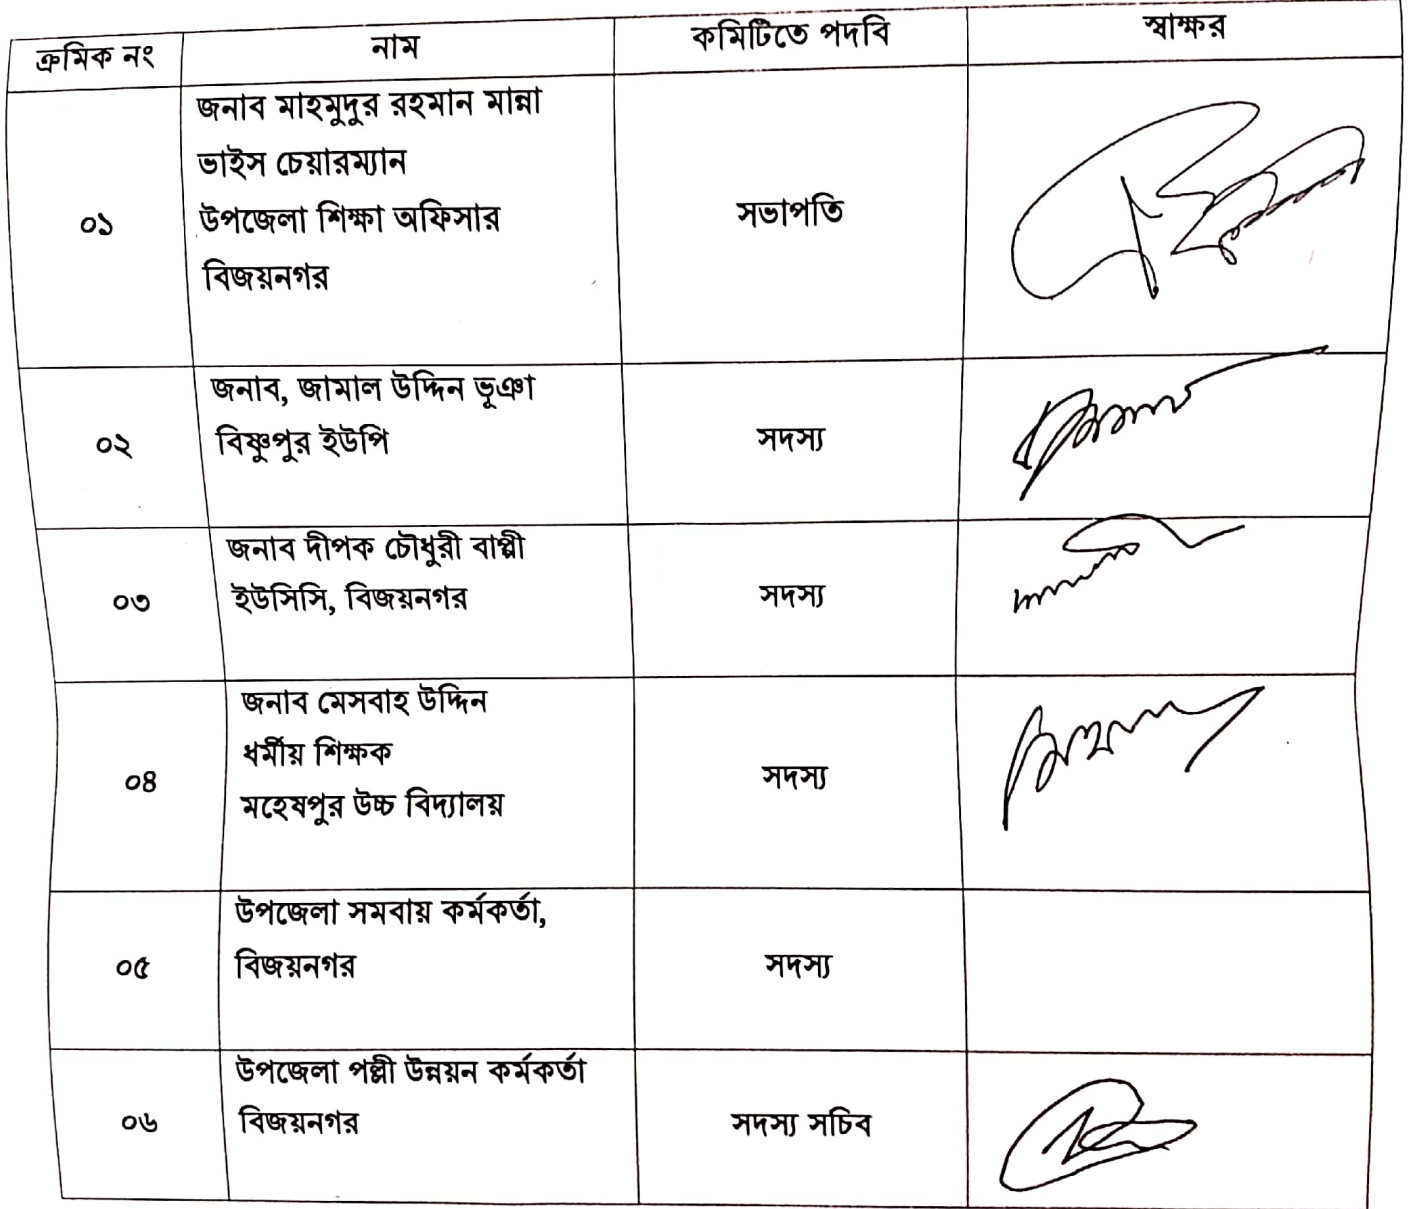 ক্রমিক নং নাম কমিটিতে পদবি স্বাক্ষর
জনাব মাহমুদুর রহমান মান্না
ভাইস চেয়ারম্যান
০১ উপজেলা শিক্ষা অফিসার সভাপতি
বিজয়নগর
জনাব, জামাল উদ্দিন ভূঞা
০২ বিষ্ণুপুর ইউপি সদস্য
জনাব দীপক চৌধুরী বাপ্পী
০৩ ইউসিসি, বিজয়নগর সদস্য
জনাব মেসবাহ উদ্দিন
ধর্মীয় শিক্ষক
০৪ মহেষপুর উচ্চ বিদ্যালয় সদস্য
উপজেলা সমবায় কর্মকর্তা,
০৫ বিজয়নগর সদস্য
উপজেলা পল্লী উন্নয়ন কর্মকর্তা
০৬ বিজয়নগর সদস্য সচিব